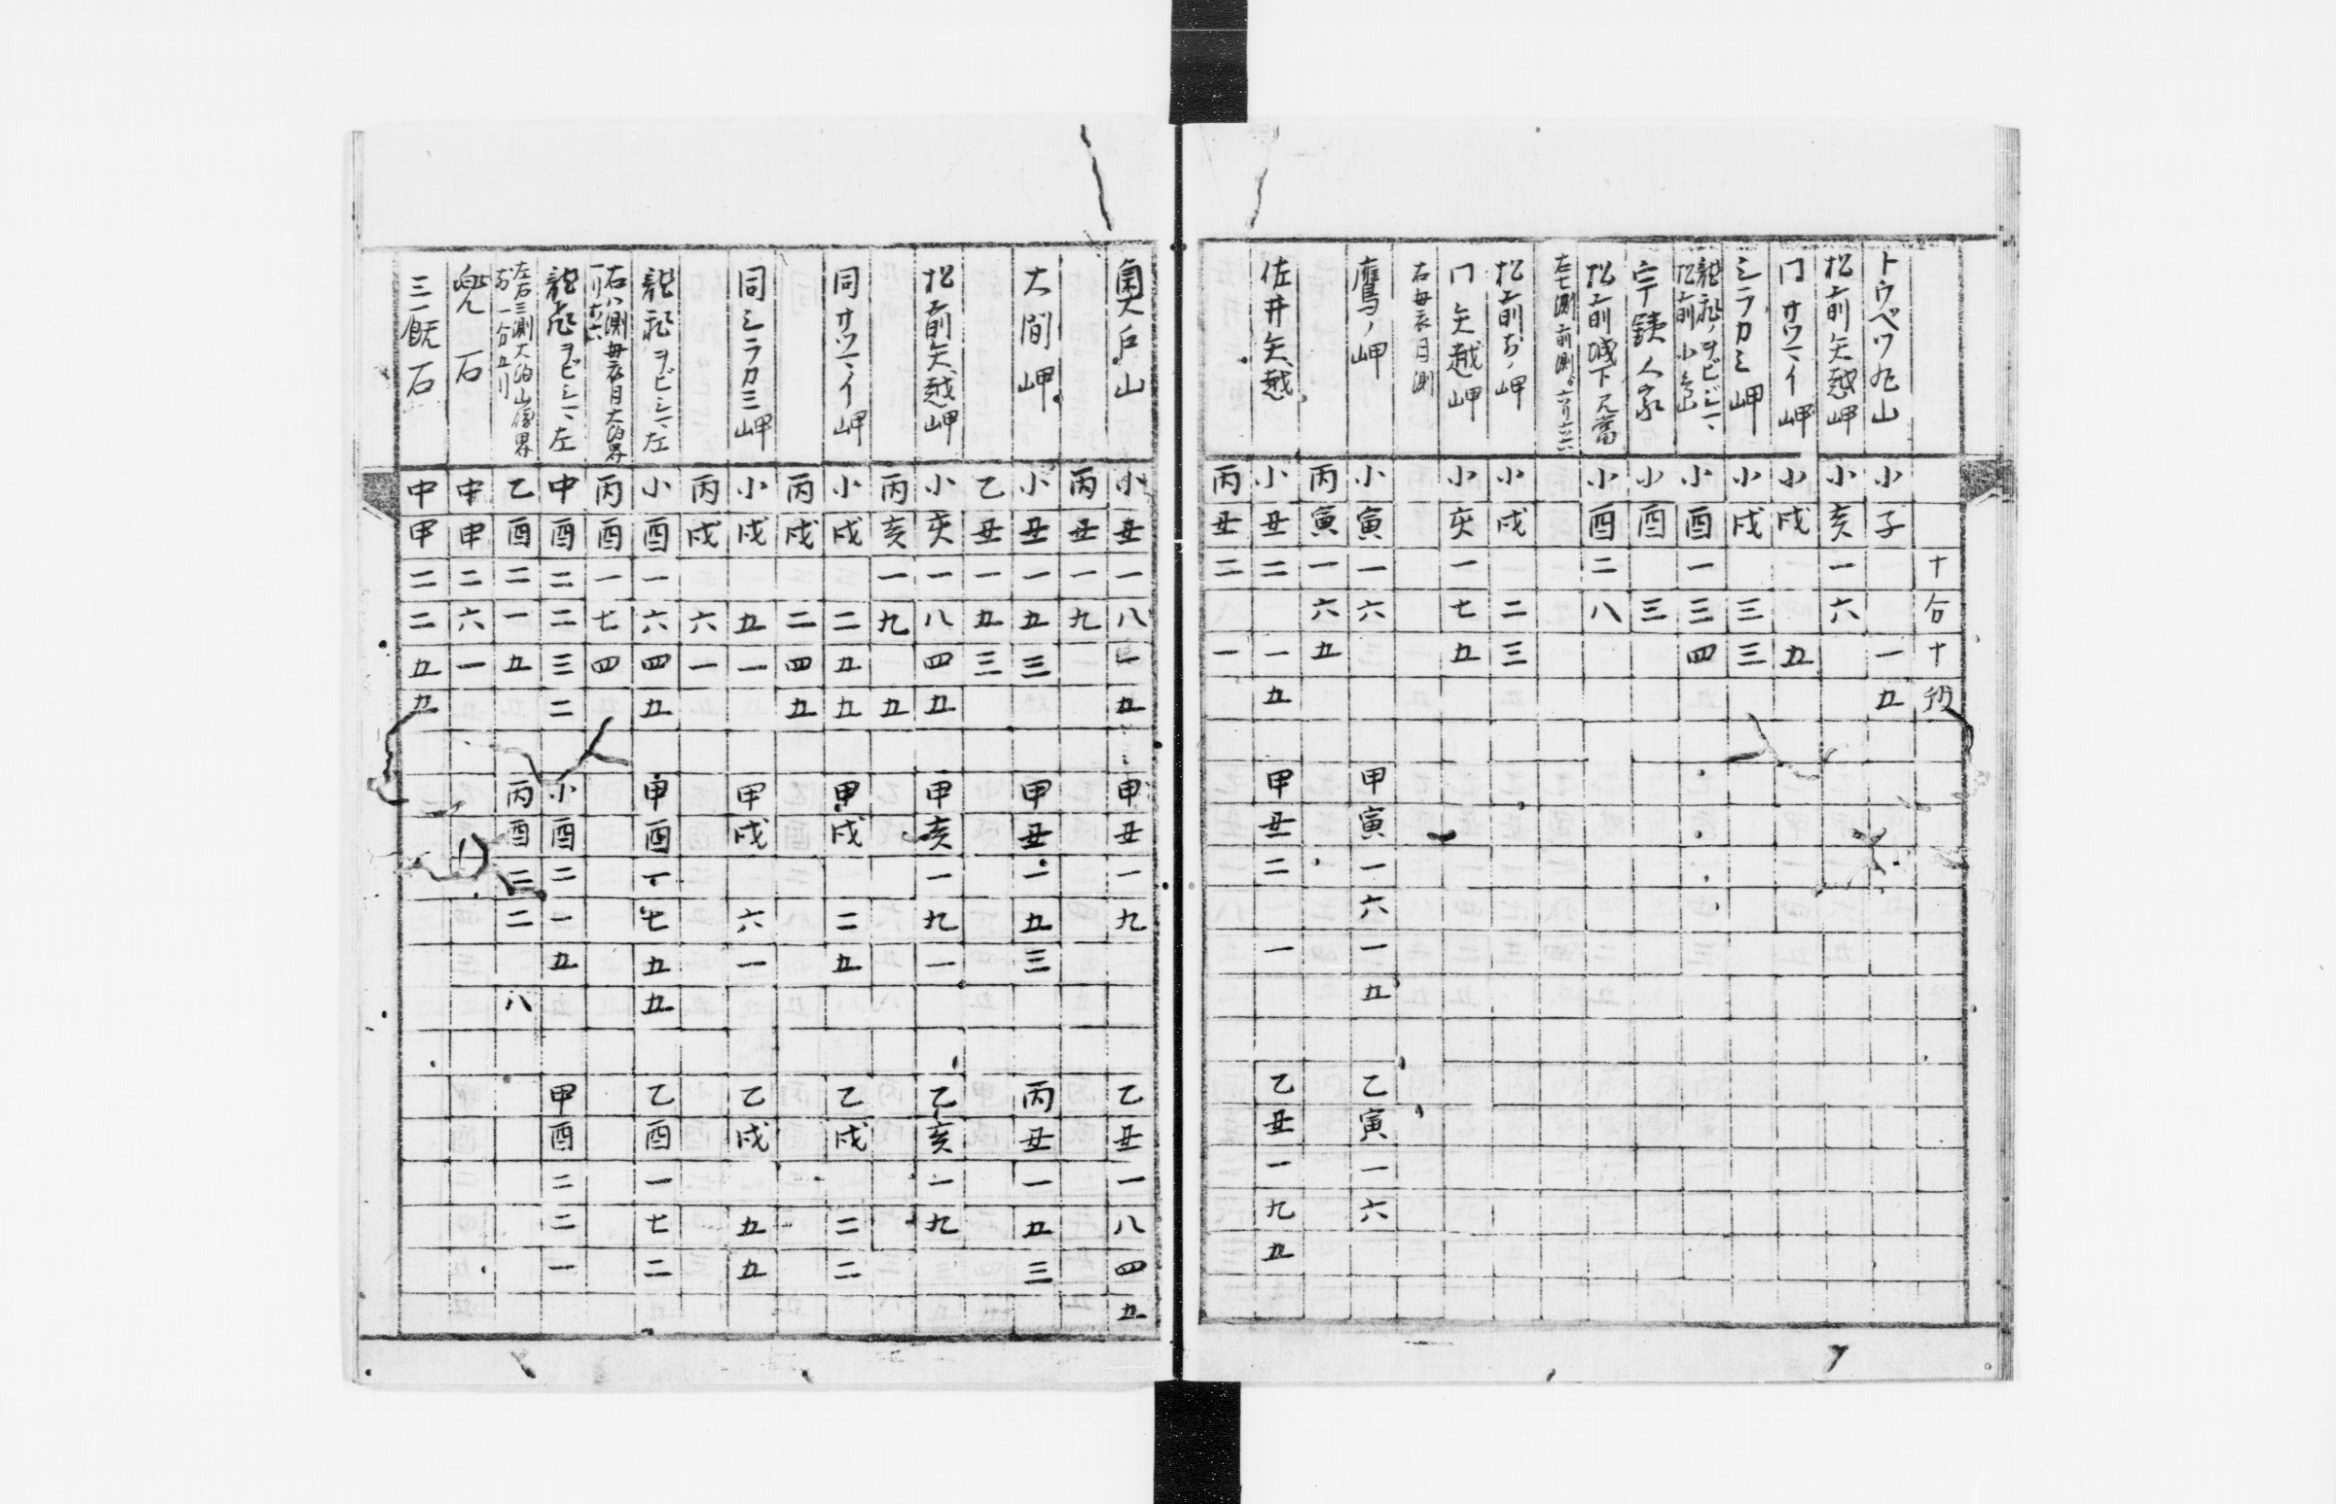 十 分 十 所
トウベツ丸山 小 子 一 五
松前矢越岬 小 亥 一 六
门 サワマイ岬 小 戌 五
シラカミ岬 小 戌 三 三
龍飛ノヲビシマ、松前小島 小 酉 一 三 四
宇鉄人家 小 酉 三
松前城下 小 酉 二 八
松前 岬 小 戌 二 三
门 矢越岬 小 亥 一 七 五
右母衣月測
鷹ノ岬 小 寅 一 六 甲 寅 一 六 一 五 乙 寅 一 六
丙 寅 一 六 五
佐井矢越 小 丑 二 一 五 甲 丑 二 一 乙 丑 一 九 五
丙 丑 二 一
奥戸山 小 丑 一 八 一 五 甲 丑 一 九 乙 丑 一 八 四 五
丙 丑 一 九
大間岬 小 丑 一 五 三 甲 丑 一 五 三 丙 丑 一 五 三
乙 丑 一 五 三
松前矢越岬 小 亥 一 八 四 五 甲 亥 一 九 一 乙 亥 一 九
丙 亥 一 九 五
同 サワマイ岬 小 戌 二 五 五 甲 戌 二 五 乙 戌 二 二
丙 戌 二 四 五
同 シラカミ岬 小 戌 五 一 甲 戌 六 一 乙 戌 五 五
丙 戌 六 一
龍飛ヲビシマ、左 小 酉 一 六 四 五 甲 酉 一 七 五 五 乙 酉 一 七 二
右八測母衣月大泊界 丙 酉 一 七 四
龍飛ヲビシマ、左 中 酉 二 二 三 二 小 酉 二 一 五 甲 酉 二 二 一
左右三測大泊山傍界 乙 酉 二 一 五 丙 酉 二 二 八
兜石 中 申 二 六 一
三厩石 中 甲 二 二 五 五